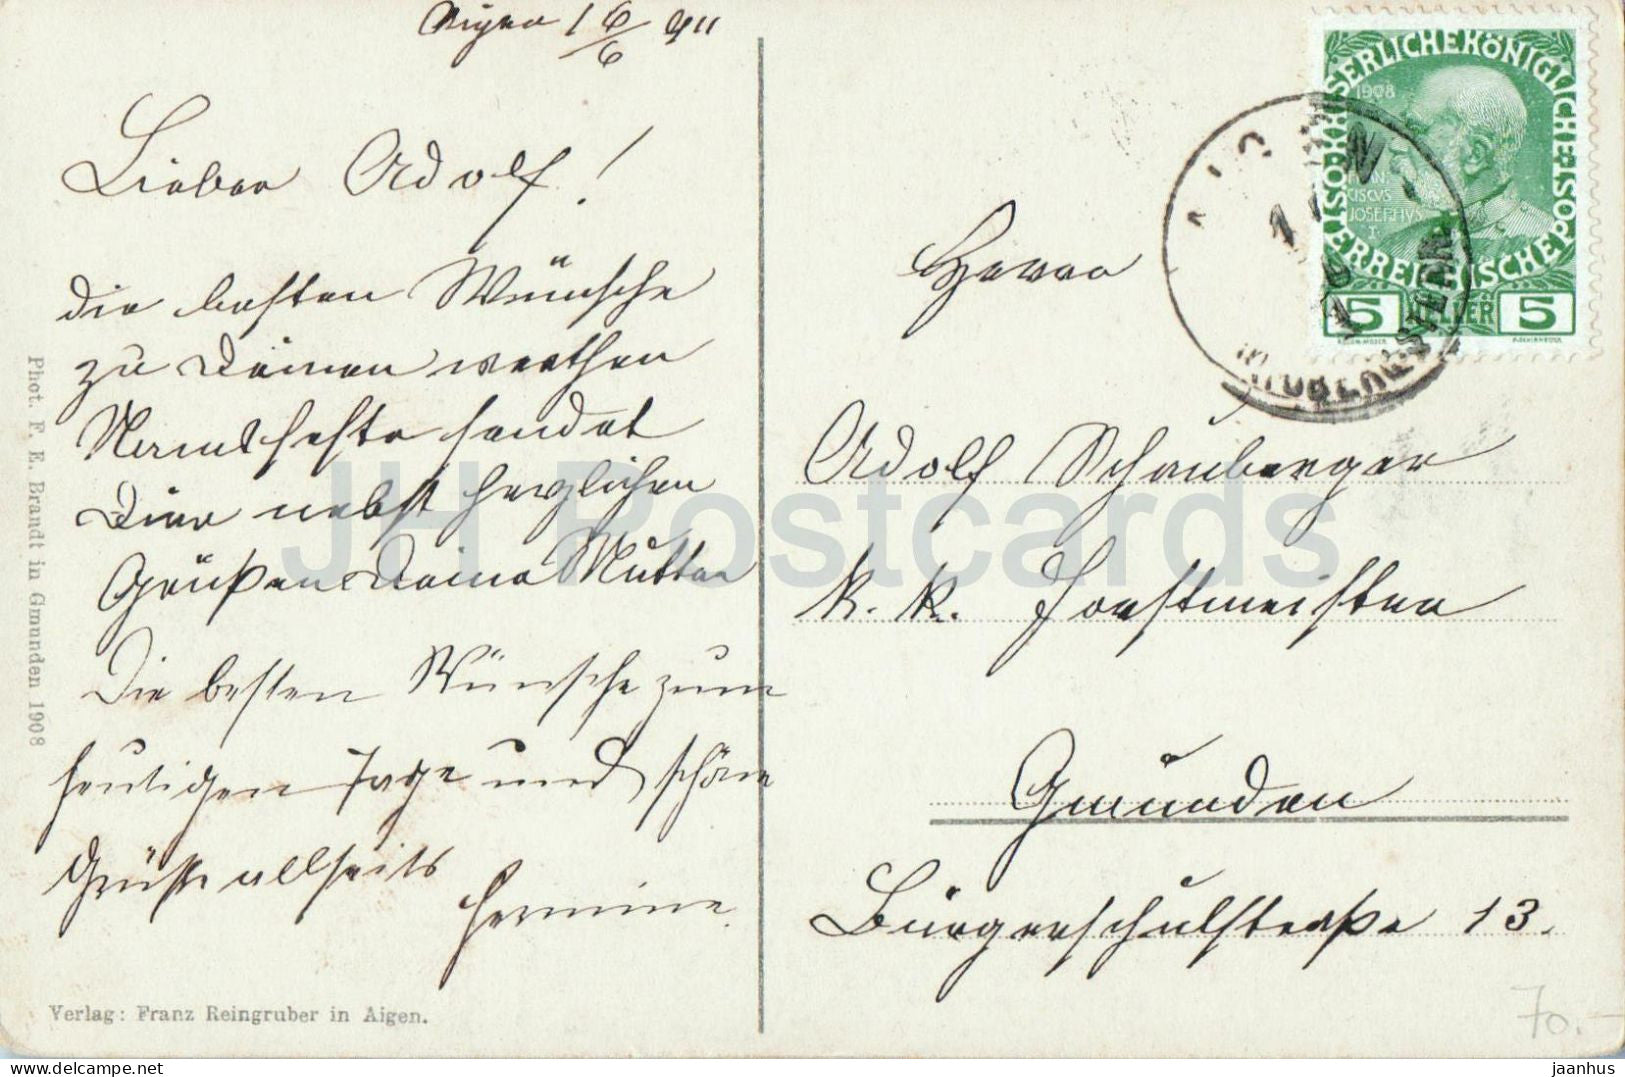 Aigen 16/6 911
Lieber Adolf!
die besten Wünsche
zu Deinem werthen
Namensfeste sendet
Dir nebst herzlichen
Grüßen Deine Mutter
Die besten Wünsche zum
heutigen Tage und schöne
Grüße allseits
Hermine.
Verlag: Franz Reingruber in Aigen.
Phot. F. E. Brandt in Gmunden 1908
KAISERLICHE KÖNIGLICHE
ÖSTERREICHISCHE POST
1908
FRAN
CISCVS
JOSEPHVS
I
5 HELLER 5
Herrn
Adolf Schauberger
k. k. Forstmeister
Gmunden
Bürgerschulstraße 13.
70.-
JH Postcards
www.delcampe.net
jaanhus